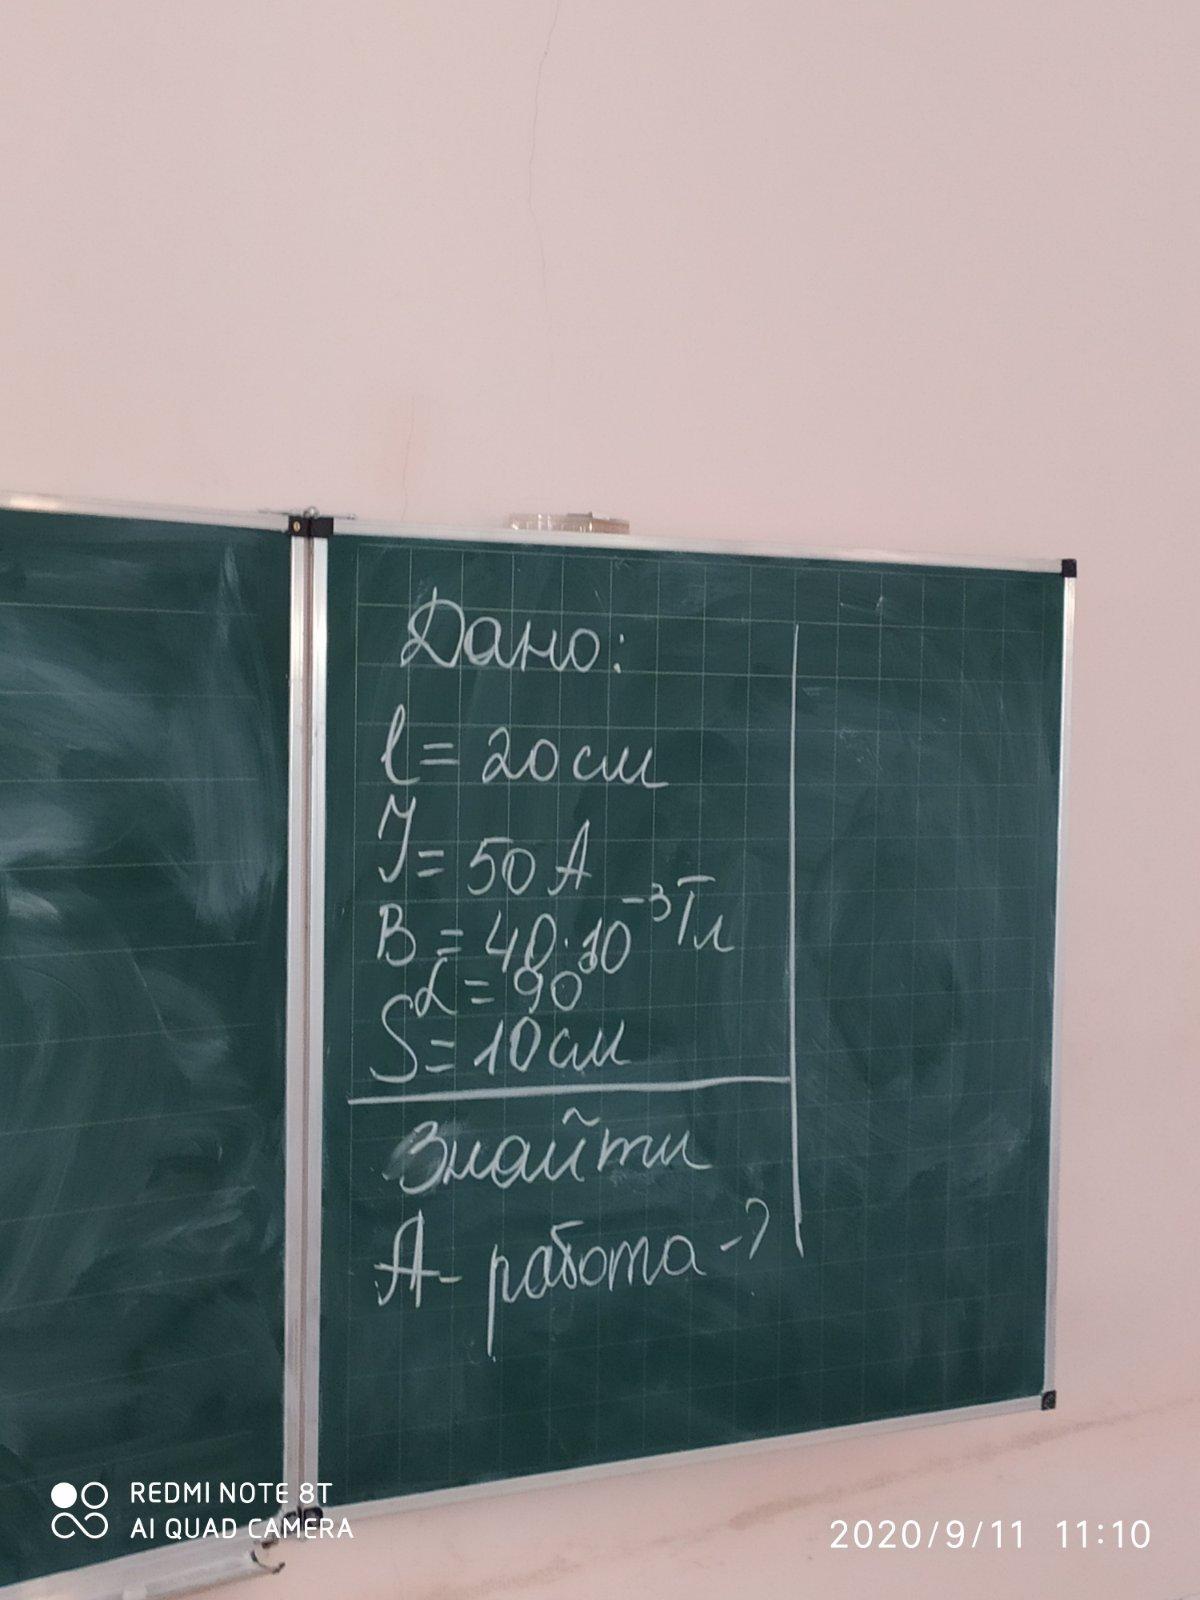 Дано:
l = 20 см
I = 50 А
B = 40·10⁻³ Тл
α = 90°
S = 10 см
Знайти
А - работа - ?
REDMI NOTE 8T
AI QUAD CAMERA
2020/9/11 11:10